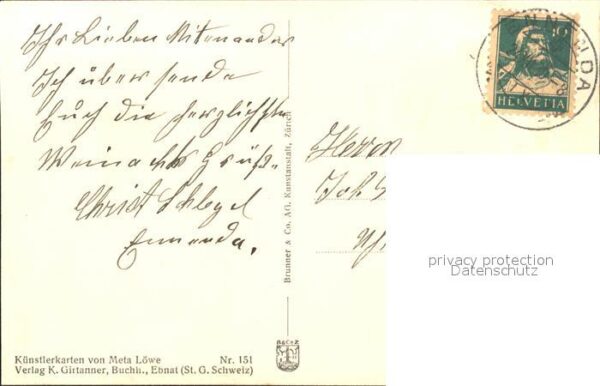 Ihr Lieben Mitenander
Ich über sende
Euch die herzlichste
Weinachts Grüße
Christ Schlegel
Ennenda.
Herrn
Joh
10
HELVETIA
ENNENDA
Brunner & Co. AG. Kunstanstalt, Zürich
privacy protection
Datenschutz
B&C&Z
Künstlerkarten von Meta Löwe Nr. 151
Verlag K. Girtanner, Buchh., Ebnat (St. G. Schweiz)